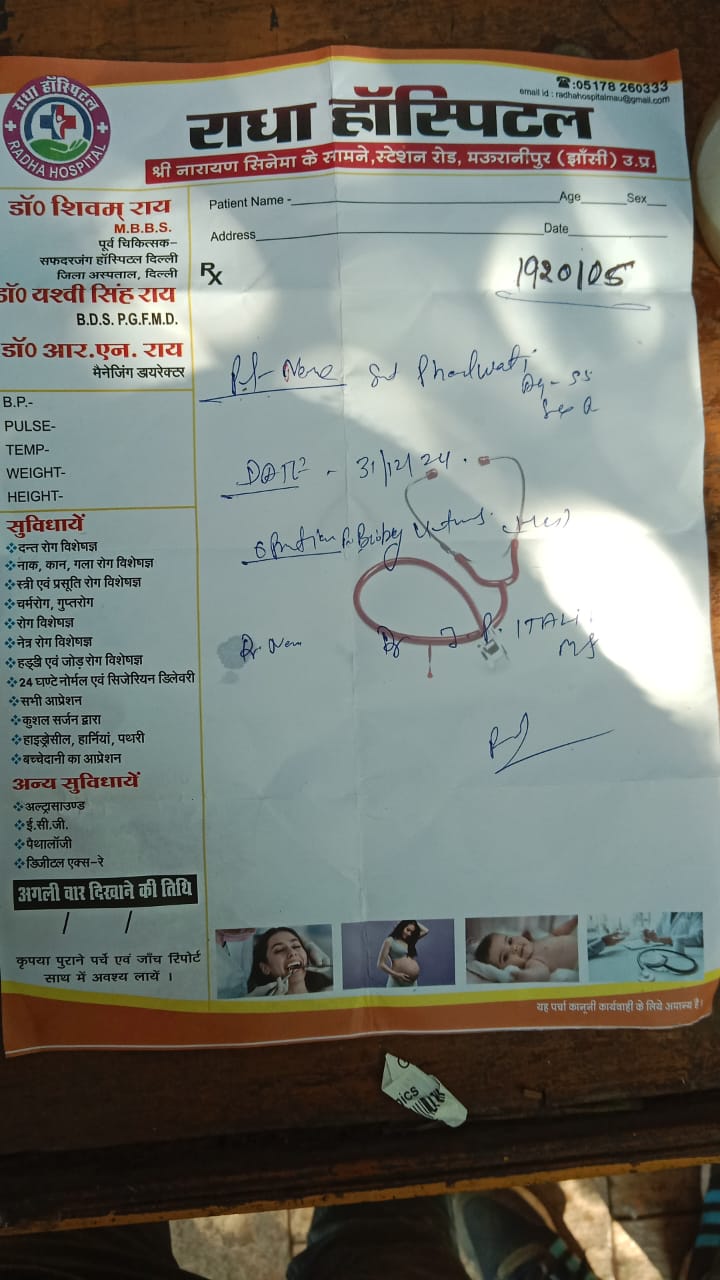 राधा हॉस्पिटल
RADHA HOSPITAL
☎:05178 260333
email id : radhahospitalmau@gmail.com
राधा हॉस्पिटल
श्री नारायण सिनेमा के सामने,स्टेशन रोड, मऊरानीपुर (झाँसी) उ.प्र.
डॉ0 शिवम् राय
M.B.B.S.
पूर्व चिकित्सक–
सफदरजंग हॉस्पिटल दिल्ली
जिला अस्पताल, दिल्ली
डॉ0 यश्वी सिंह राय
B.D.S. P.G.F.M.D.
डॉ0 आर.एन. राय
मैनेजिंग डायरेक्टर
B.P.-
PULSE-
TEMP-
WEIGHT-
HEIGHT-
सुविधायें
❖दन्त रोग विशेषज्ञ
❖नाक, कान, गला रोग विशेषज्ञ
❖स्त्री एवं प्रसूति रोग विशेषज्ञ
❖चर्मरोग, गुप्तरोग
❖रोग विशेषज्ञ
❖नेत्र रोग विशेषज्ञ
❖हड्डी एवं जोड़ रोग विशेषज्ञ
❖24 घण्टे नोर्मल एवं सिजेरियन डिलेवरी
❖सभी आप्रेशन
❖कुशल सर्जन द्वारा
❖हाइड्रोसील, हार्निया, पथरी
❖बच्चेदानी का आप्रेशन
अन्य सुविधायें
❖अल्ट्रासाउण्ड
❖ई.सी.जी.
❖पैथालॉजी
❖डिजीटल एक्स–रे
अगली वार दिखाने की तिथि
/ /
कृपया पुराने पर्चे एवं जाँच रिपोर्ट
साथ में अवश्य लायें ।
Patient Name - Age Sex
Address Date
Rx
1920/05
Pt Name
DATE - 31/12/24.
Biopsy
Dr. Name Dr J. P. ITALI
MS
यह पर्चा कानूनी कार्यवाही के लिये अमान्य है।
ics